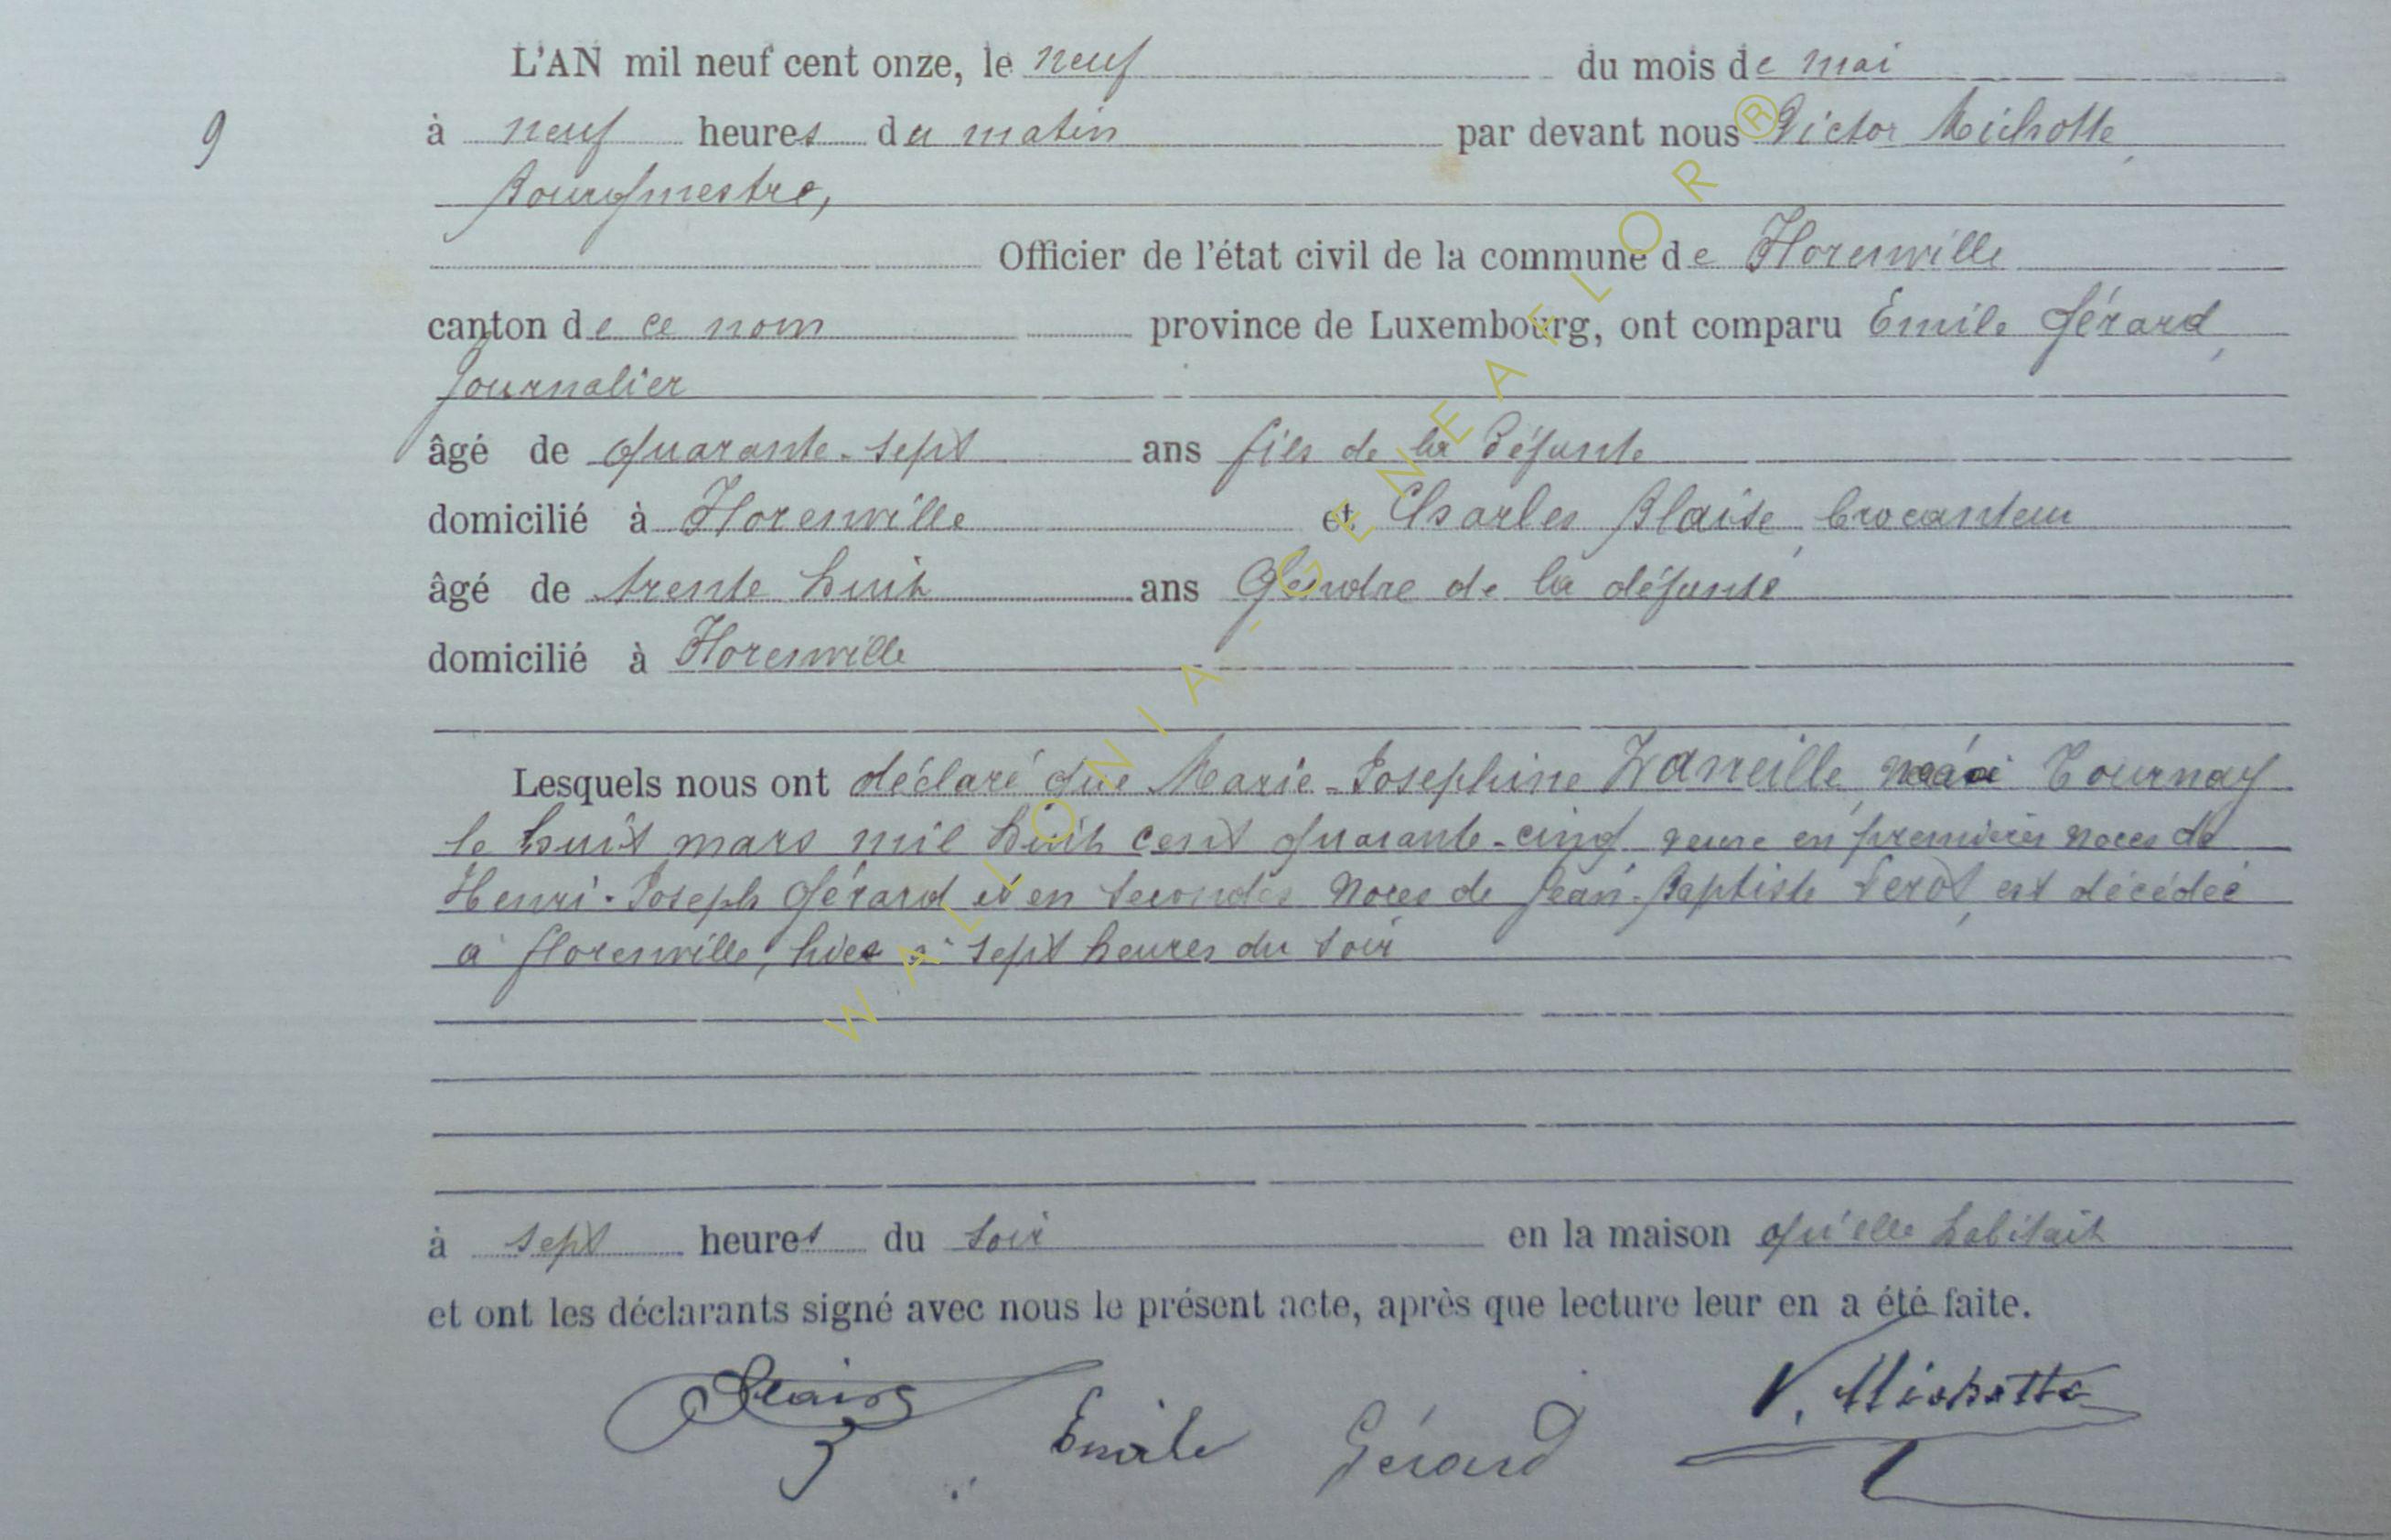 L'AN mil neuf cent onze, le neuf du mois de mai
9 à neuf heures du matin par devant nous Victor Michotte,
Bourgmestre,
Officier de l'état civil de la commune de Florenville
canton de ce nom province de Luxembourg, ont comparu Emile Gérard,
Journalier
âgé de quarante-sept ans fils de la défunte
domicilié à Florenville et Charles Blaise, brocanteur
âgé de trente huit ans Gendre de la défunte
domicilié à Florenville
Lesquels nous ont déclaré que Marie-Josephine Tournay
le huit mars mil huit cent quarante-cinq veuve en premières noces de
Henri-Joseph Gérard et en secondes noces de Jean-Baptiste est décédée
à florenville, hier à sept heures du soir
à sept heures du soir en la maison qu'elle habitait
et ont les déclarants signé avec nous le présent acte, après que lecture leur en a été faite.
Blaise Emile Gérard V. Michotte
WALLONIA-GENEAFLOR®